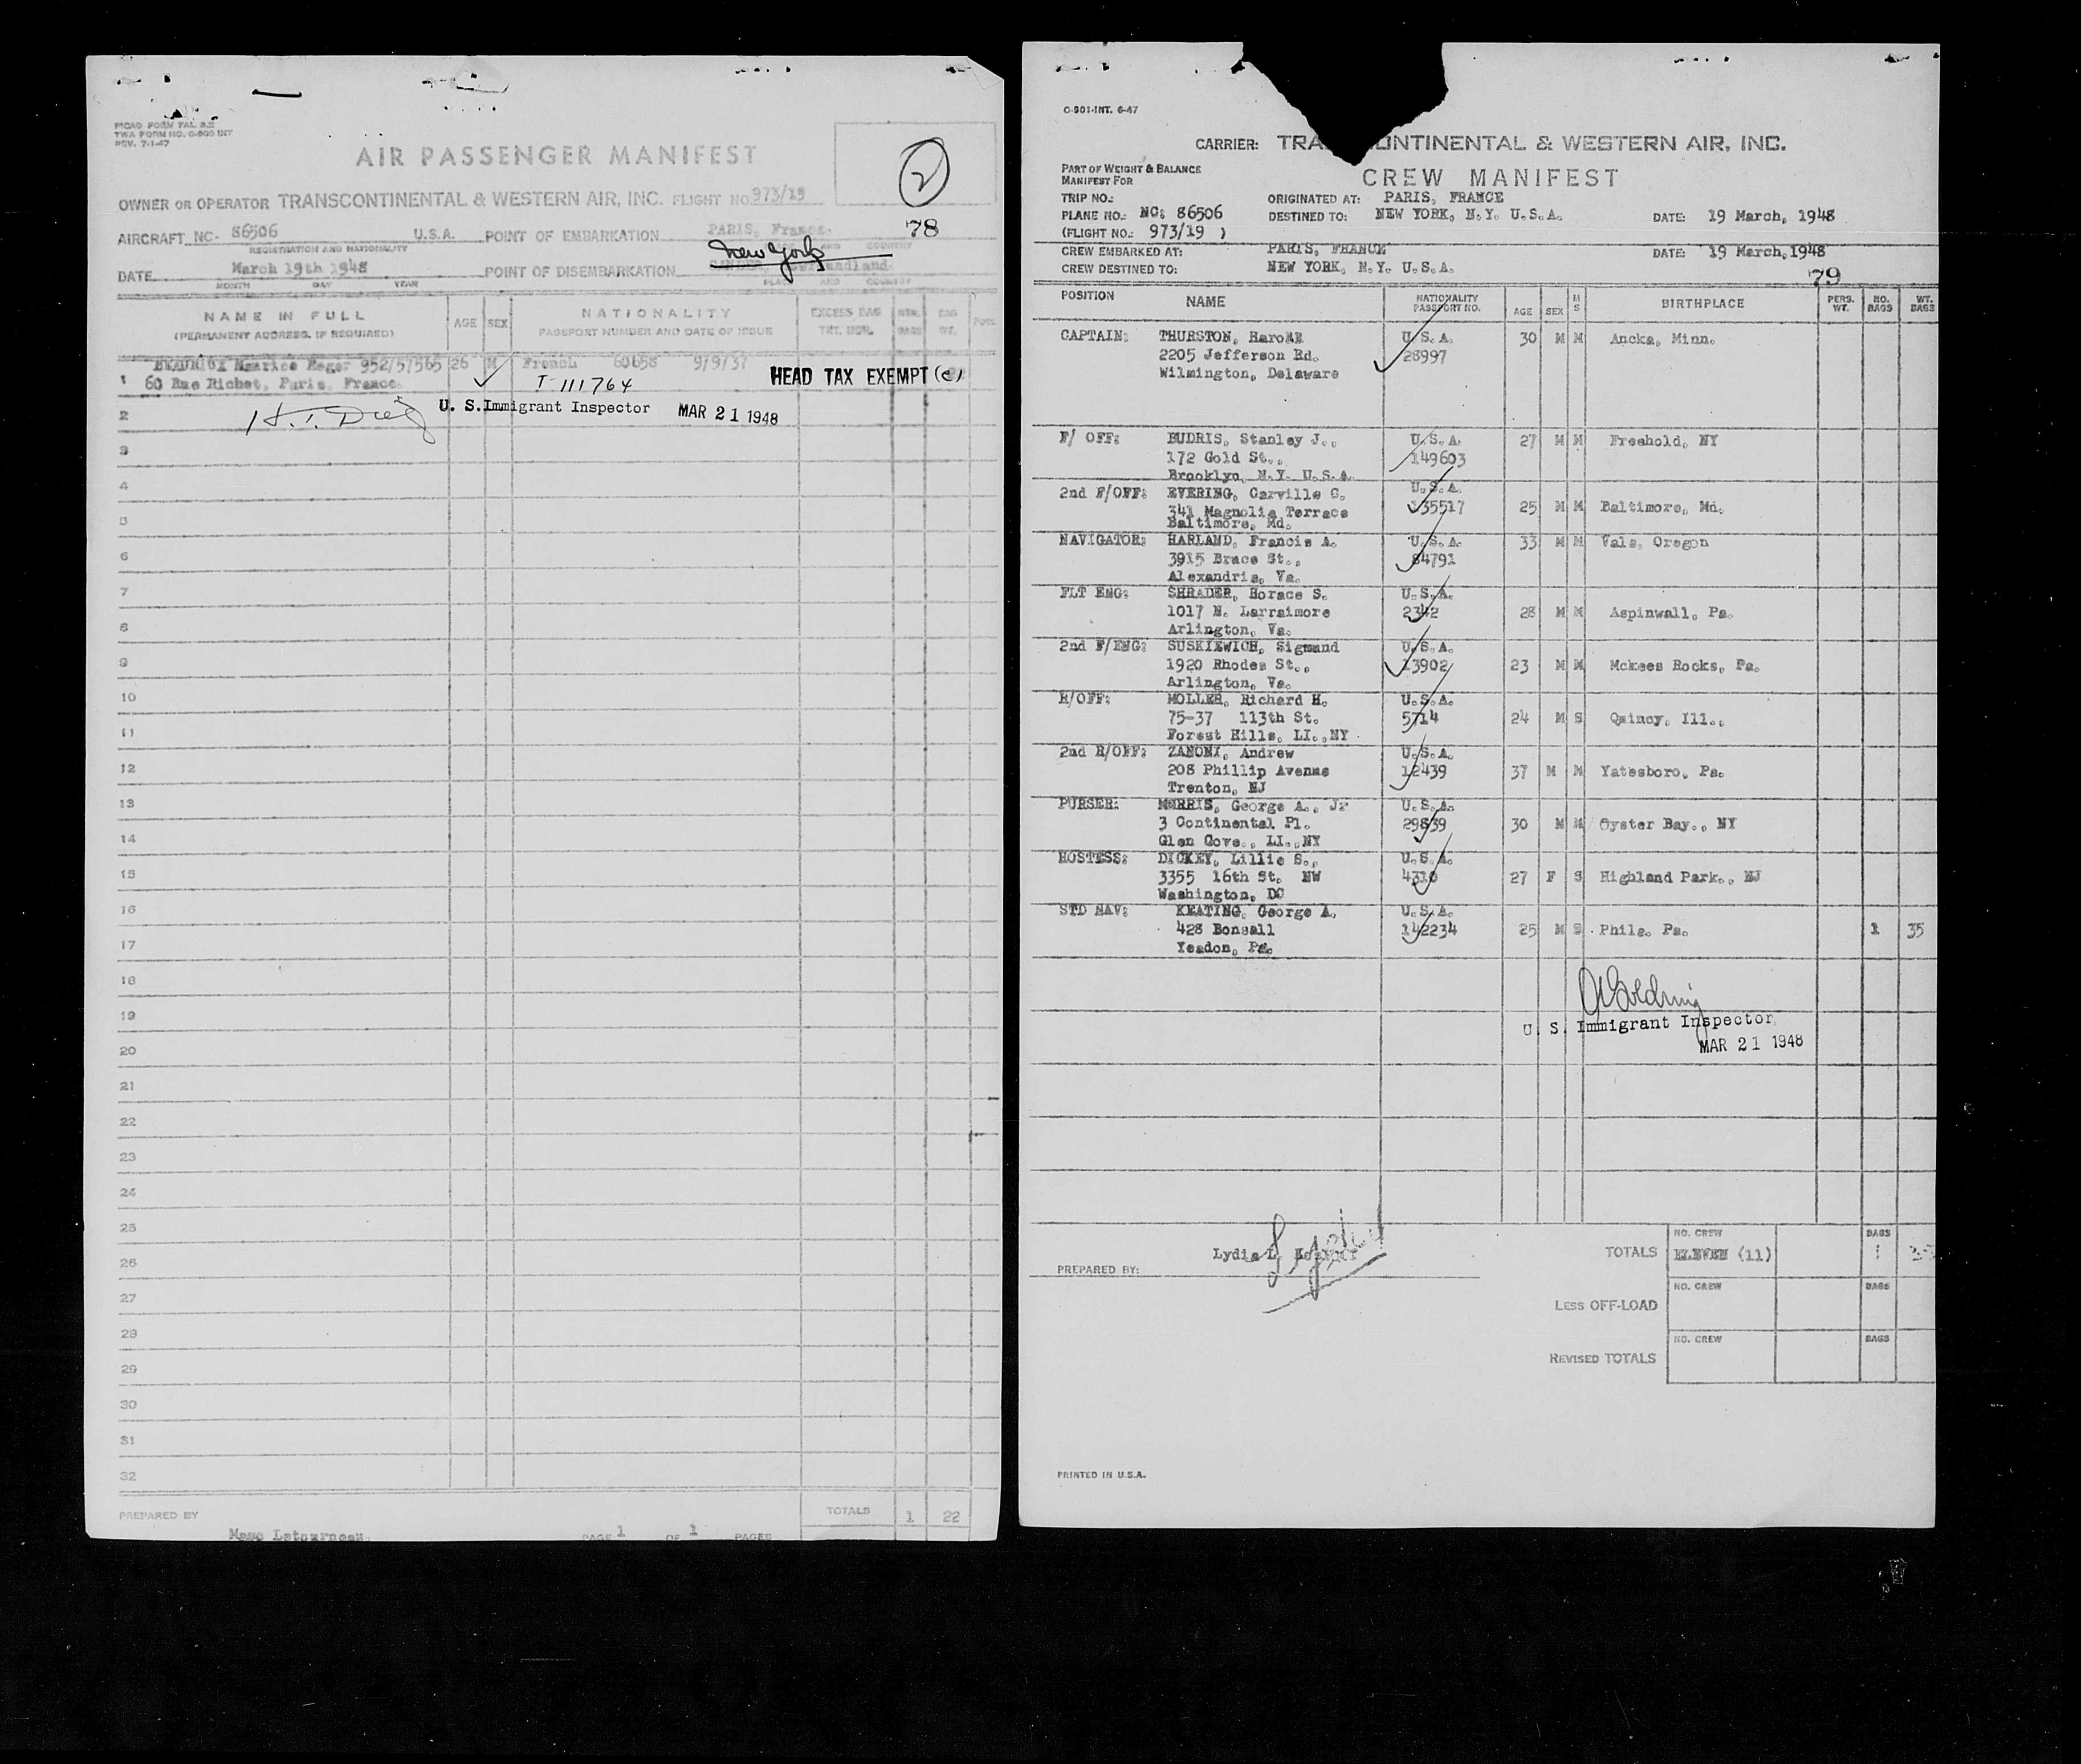 TWA FORM NO. 0-900 INT
REV. 7-1-47
AIR PASSENGER MANIFEST
2
OWNER OR OPERATOR TRANSCONTINENTAL & WESTERN AIR, INC. FLIGHT NO. 973/19
78
AIRCRAFT NC- 86506 U.S.A. POINT OF EMBARKATION PARIS, France.
REGISTRATION AND NATIONALITY AND COUNTRY
New York
DATE March 19th 1948 POINT OF DISEMBARKATION
MONTH DAY YEAR PLACE AND COUNTRY
NAME IN FULL
(PERMANENT ADDRESS, IF REQUIRED)
AGE SEX
NATIONALITY
PASSPORT NUMBER AND DATE OF ISSUE
EXCESS BAG
BAGS
BAG
WT.
Maurice 952/57565 26 M French 60658 9/9/37
1 60 Rue Richet, Paris, France. T-111764 HEAD TAX EXEMPT (e)
2 U. S. Immigrant Inspector MAR 21 1948
3
4
5
6
7
8
9
10
11
12
13
14
15
16
17
18
19
20
21
22
23
24
25
26
27
28
29
30
31
32
TOTALS 1 22
PREPARED BY
PAGE 1 OF 1 PAGES
O-901-INT. 6-47
CARRIER: TRA ONTINENTAL & WESTERN AIR, INC.
PART OF WEIGHT & BALANCE
MANIFEST FOR
CREW MANIFEST
TRIP NO.: ORIGINATED AT: PARIS, FRANCE
PLANE NO.: NC: 86506 DESTINED TO: NEW YORK, N.Y. U.S.A. DATE: 19 March, 1948
(FLIGHT NO.: 973/19 )
CREW EMBARKED AT: PARIS, FRANCE DATE: 19 March,1948
CREW DESTINED TO: NEW YORK, N.Y. U.S.A.
79
POSITION NAME NATIONALITY PASSPORT NO. AGE SEX M S BIRTHPLACE PERS. WT. NO. BAGS WT. BAGS
CAPTAIN: THURSTON, U.S.A. 30 M M Ancka, Minn.
2205 Jefferson Rd. 28997
Wilmington, Delaware
F/ OFF: BUDRIS, Stanley J., U.S.A. 27 M M Freehold, NY
172 Gold St., 149603
Brooklyn, N.Y. U.S.A.
2nd F/OFF: EVERING, Carville G. U.S.A.
341 Magnolia Terrace 135517 25 M M Baltimore, Md.
Baltimore, Md.
NAVIGATOR: HARLAND, Francis A. U.S.A. 33 M M Vale, Oregon
3915 Brace St., 84791
Alexandria, Va.
FLT ENG: SHRADER, Horace S. U.S.A.
1017 N. Larraimore 2342 28 M M Aspinwall, Pa.
Arlington, Va.
2nd F/ENG: SUSKIEWICH, Sigmund U.S.A.
1920 Rhodes St., 13902 23 M M Mckees Rocks, Pa.
Arlington, Va.
R/OFF: MOLLER, Richard H. U.S.A.
75-37 113th St. 5714 24 M S Quincy, Ill.,
Forest Hills, LI.,NY
2nd R/OFF: ZANONI, Andrew U.S.A.
208 Phillip Avenue 12439 37 M M Yatesboro, Pa.
Trenton, NJ
PURSER: MORRIS, George A., Jr U.S.A.
3 Continental Pl. 29839 30 M M Oyster Bay., NY
Glen Cove., LI.,NY
HOSTESS: DICKEY, Lillie S., U.S.A.
3355 16th St. NW 4310 27 F S Highland Park., NJ
Washington, DC
STD NAV: KEATING, George A. U.S.A.
428 Bonsall 142234 25 M S Phila. Pa. 1 35
Yeadon, Pa.
U. S. Immigrant Inspector
MAR 21 1948
PREPARED BY: Lydia L.
TOTALS NO. CREW ELEVEN (11) BAGS 1
LESS OFF-LOAD NO. CREW BAGS
REVISED TOTALS NO. CREW BAGS
PRINTED IN U.S.A.